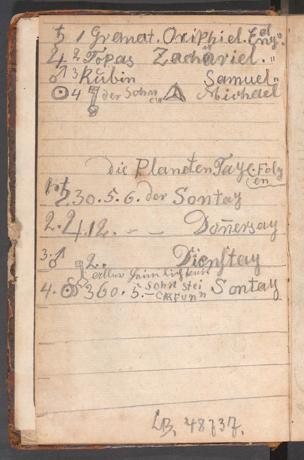 ♄ 1 Granat. Orixhiel. Eng".
♃ 2 Topas Zachariel. "
♂ 3 Rubin Samuel "
☉ 4 der Sohn Michael
die Planeten Tage Folgen
1. ♄ 2.30.5.6. der Sontag
2. ♃ 4.12. — — Donersag
3. ♂ 2.. Dienstag
4. ☉ 360.5. — Sontag
LB. 48737.